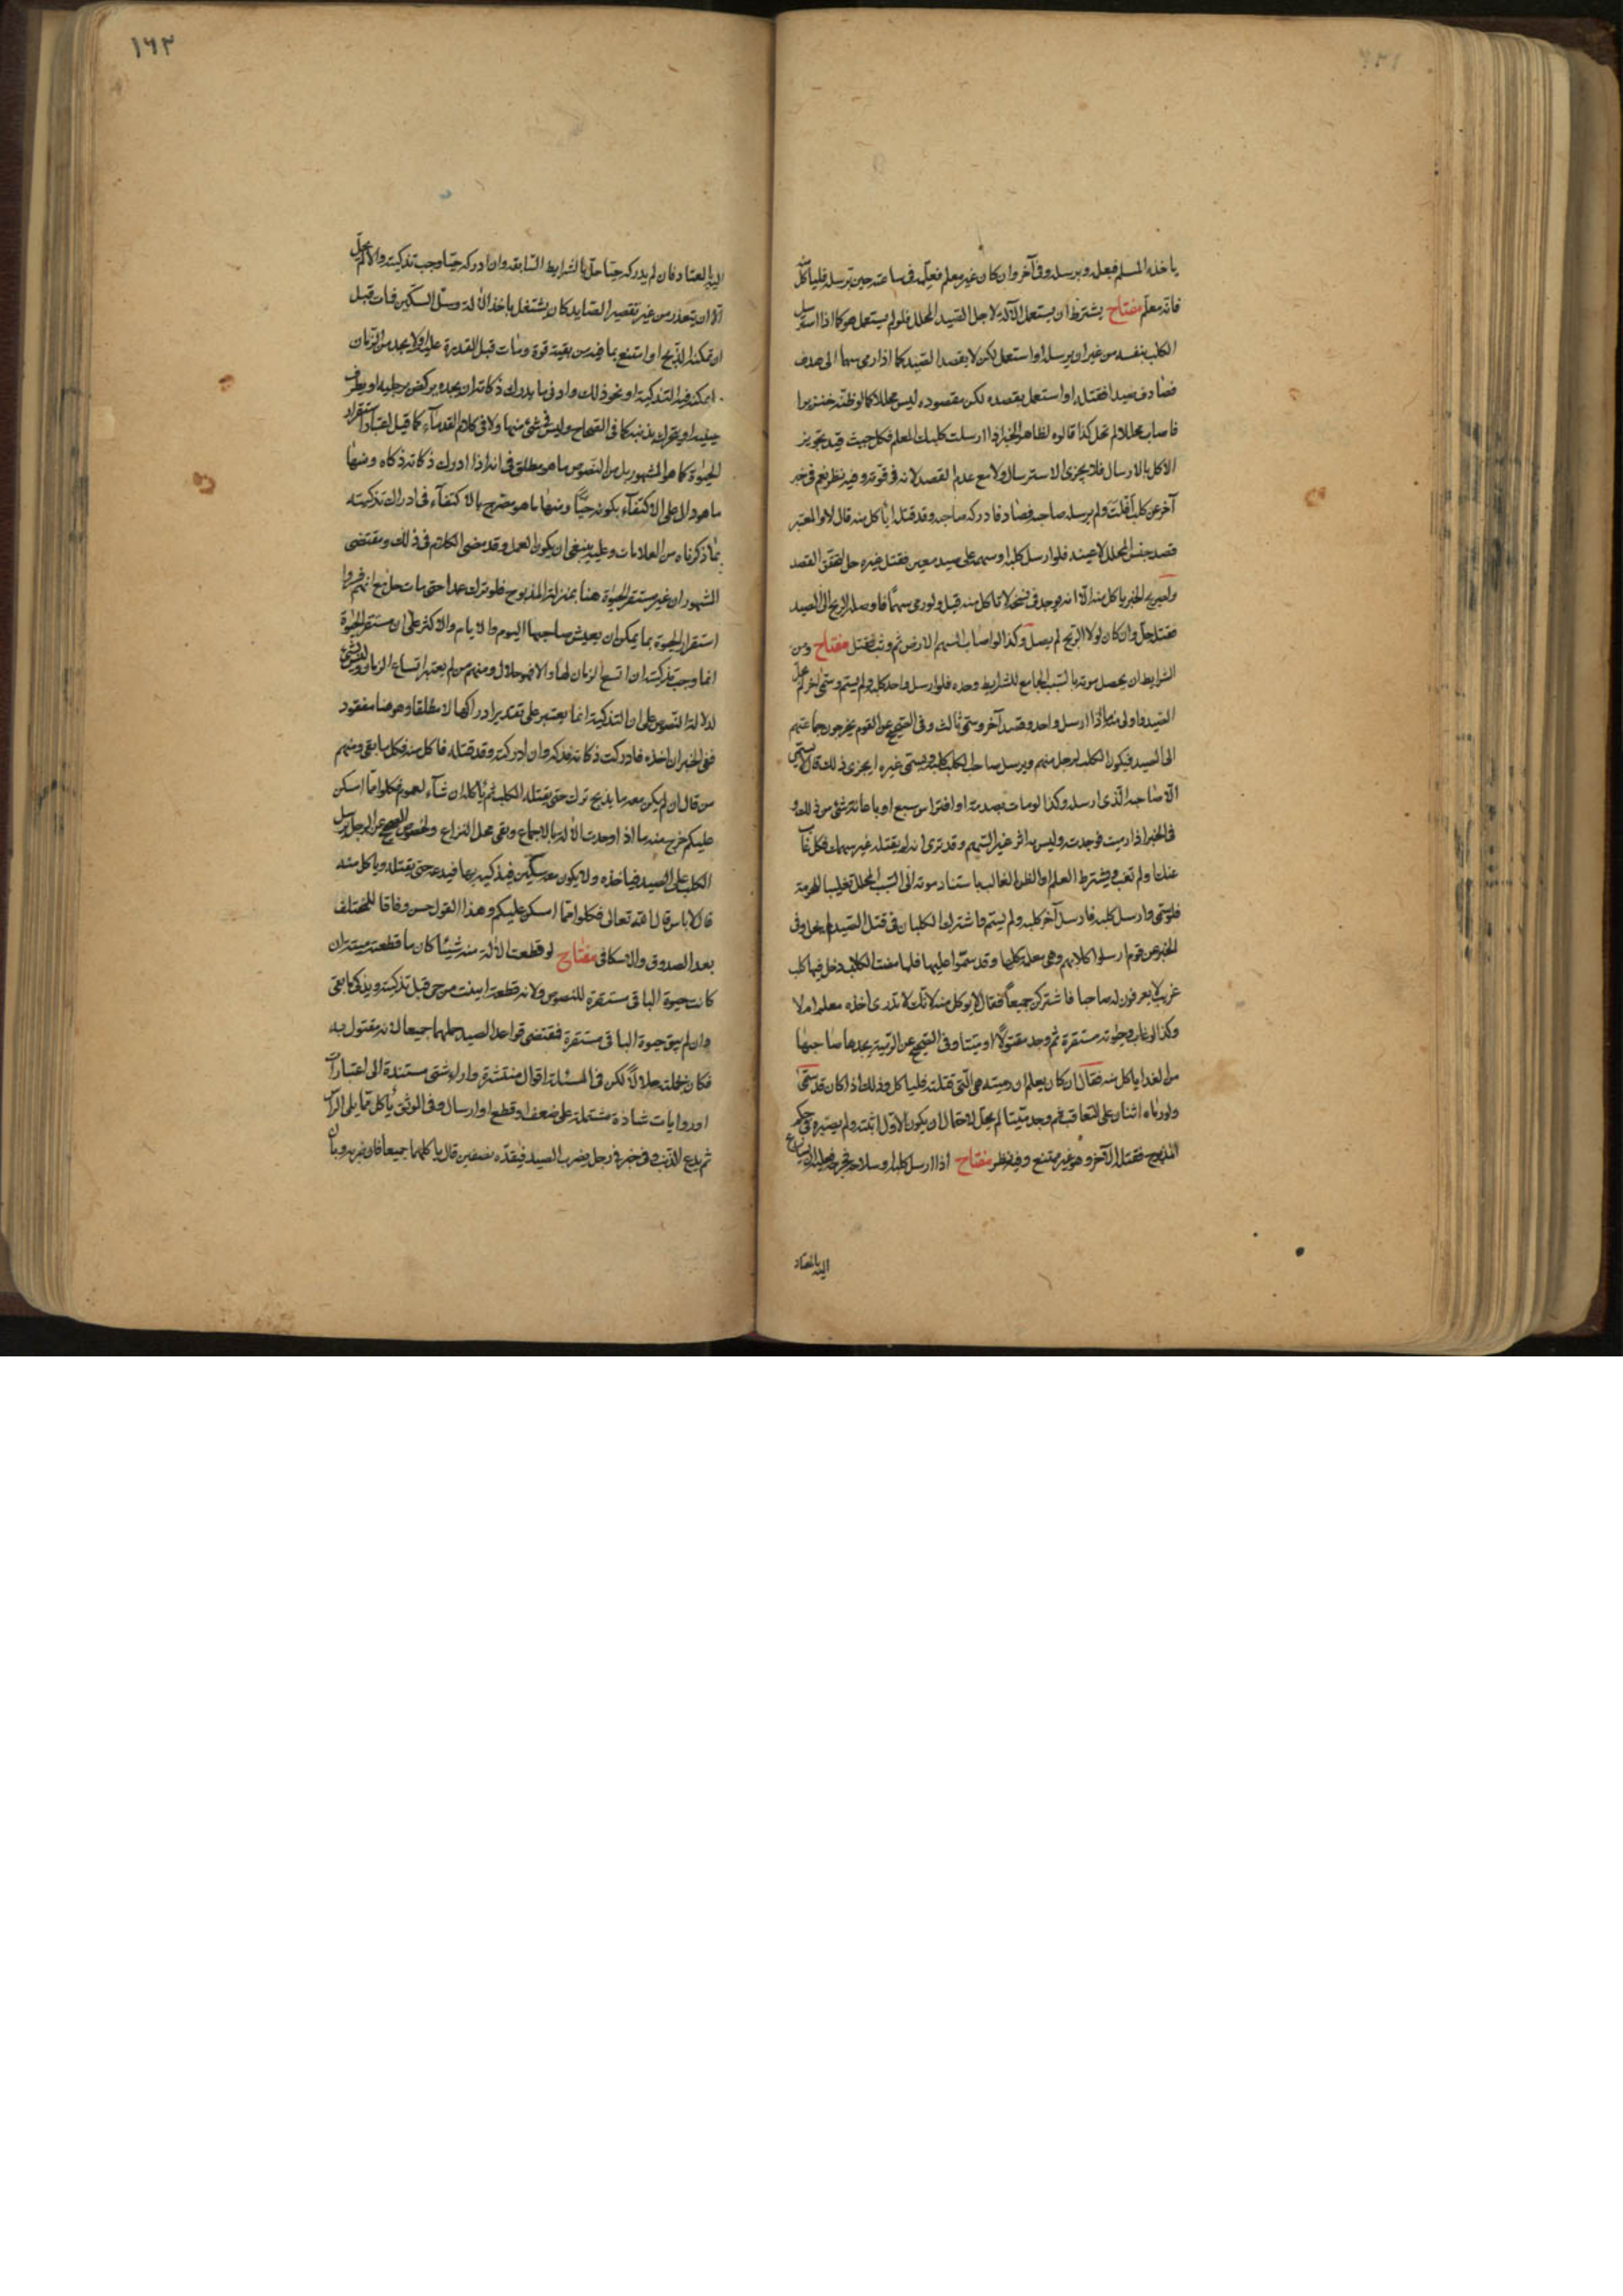 ياخذه المسلم فيعلمه ويرسله وفى آخر وان كان غير معلم فعلّمه فى ساعته حين ترسله فلياكل منه
فانه معلم مفتاح يشترط ان يستعمل الآلة لاجل الصّيد المحلل فلو لم يستعمل هو كما اذا استرسل
الكلب بنفسه من غير ان يرسله او استعمل لكن لا بقصد الصّيد كما اذا رمى سهما الى هدف
فصادف صيدا فقتله او استعمل بقصده لكن مقصوده ليس محللا كما لو ظنّه خنزيرا
فاصاب محللا لم تحل كذا قالوه لظاهر الخبر اذا ارسلت كلبك المعلم فكل حيث قيد تجويز
الاكل بالارسال فلا يجزى الاسترسال ولا مع عدم القصد لانه فى قوّته وفيه نظر نعم فى خبر
آخر عن كلب افلت ولم يرسله صاحبه فصاد فادركه صاحبه وقد قتله اياكل منه قال لا والمعتبر
قصد جنس المحلل لا عينه فلو ارسل كلبه او سهمه على صيد معين فقتل غيره حل لتحقق القصد
ياكل منه الّا انه يوجد فى نسخة لا تاكل منه قيل ولو رمى سهمًا فاوصله الريح الى الصيد
فقتله حل وان كان لولا الريح لم يصل وكذا لو اصاب السهم الارض ثم وثب فقتل مفتاح ومن
الشرايط ان يحصل موته بالسّبب الجامع للشرايط وحده فلو ارسل واحد كلبه ولم يسم وسمّى اخر لم يحل
الصّيد واولى منه اذا ارسل واحد وقصد آخر وسمّى ثالث وفى الصّحيح عن القوم يخرجون جماعتهم
الى الصيد فيكون الكلب لرجل منهم ويرسل صاحب الكلب كلبه ويسمّى غيره ايجزى ذلك قال لا يسمّى
الّا صاحبه الّذى ارسله وكذا لو مات بصدمة او افتراس سبع او باعانة شئ من ذلك و
فى الخبر اذا رميت فوجدته وليس به اثر غير السّهم وقد ترى انه لم يقتله غير سهمك فكل غاب
عنك او لم تغب ويشترط العلم او الظن الغالب باستناد موته الى السّبب المحلل تغليبا للحرمة
فلو سمّى وارسل كلبه فارسل آخر كلبه ولم يسمّ واشترك الكلبان فى قتل الصّيد لم يحل وفى
الخبر عن قوم ارسلوا كلابهم وهى معلمة كلها وقد سمّوا عليها فلما مضت الكلاب دخل فيها كلب
غريب لا يعرفون له صاحبا فاشتركن جميعًا فقال لا يوكل منه لانّك لا تدرى اخذه معلم ام لا
وكذا لو غاب وحيوته مستقرة ثم وجد مقتولًا او ميتا وفى الصّحيح عن الرّمية يجدها صاحبها
من الغد اياكل منه فقال ان كان يعلم ان رميته هى الّتى قتلته فلياكل وذلك اذا كان قد سمّى
ولو رماه اثنان على التعاقب ثم وجد ميّتا لم يحل لاحتمال ان يكون الاول اثبته ولم يصيّره فى حكم
المذبوح فقتله الآخر وهو غير ممتنع وفيه نظر مفتاح اذا ارسل كلبه او سلاحه فجرحه فعليه ان يسارع
اليه بالمعتاد
١٦٢
اليه بالمعتاد فان لم يدركه حيّا حل بالشرايط السّابقة وان ادركه حيّا وجب تذكيته والّا لم يحلّ
الّا ان يتعذر من غير تقصير الصّايد كان يشتغل باخذ الآلة وسلّ السكّين فمات قبل
ان يمكنه الذّبح او امتنع بما فيه من بقية قوة ومات قبل القدرة عليه او لا يجد من الزّمان
ما يمكنه فيه التذكية او نحو ذلك وادنى ما يدرك ذكاته ان يجده يركض برجليه او يطرف
عينيه او يتحرك ذنبه كما فى الصّحاح وليس فى شئ منها ولا فى كلام القدماء كما قيل اعتبار استقرار
الحيوة كما هو المشهور بل من النّصوص ما هو مطلق فى انه اذا ادرك ذكاته ذكاه ومنها
ما هو دال على الاكتفآء بكونه حيًّا ومنها ما هو مصّرح بالاكتفآء فى ادراك تذكيته
بما ذكرناه من العلامات وعليه ينبغى ان يكون العمل وقد مضى الكلام فى ذلك ومقتضى
المشهور ان غير مستقر الحيوة هنا بمنزلة المذبوح فلو ترك عمدا حتى مات حل مع انهم فسّروا
استقرار الحيوة بما يمكن ان يعيش صاحبها اليوم والايام والاكثر على ان مستقر الحيوة
انما وجب تذكيته ان اتسع الزمان لها والا فهو حلال ومنهم من لم يعتبر اتساع الزمان
لدلالة النّصوص على ان التذكية انما يعتبر على تقدير ادراكها لا مطلقا وهو هنا مفقود
ففى الخبر ان اخذه فادركت ذكاته فذكه وان ادركته وقد قتله فاكل منه فكل ما بقى ومنهم
من قال ان لم يكن معه ما يذبح ترك حتى يقتله الكلب ثم ياكله ان شآء لعموم فكلوا ممّا امسكن
عليكم خرج منه ما اذا وجدت الآلة بالاجماع وبقى محل النزاع ولخصوص الصحيح عن الرجل يرسل
الكلب على الصيد فياخذه ولا يكون معه سكّين فيذكيه بها فيدعه حتى يقتله وياكل منه
قال لا باس قال الله تعالى فكلوا ممّا امسكن عليكم وهذا القول حسن وفاقا للمختلف
بعد الصدوق والاسكافى مفتاح لو قطعت الآلة منه شيئا كان ما قطعته ميتة ان
كانت حيوة الباقى مستقرة للنصوص ولانه قطعة ابينت من حى قبل تذكيته ويذكى ما بقى
وان لم يبق حيوة الباقى مستقرة فمقتضى قواعد الصيد حلهما جميعا لانه مقتول به
فكان بجملته حلالًا لكن فى المسئلة اقوال منتشرة واراء شتى مستندة الى اعتبارات
او روايات شاذة مشتملة على ضعف او قطع او ارسال وفى الموثق ياكل ممّا يلى الراس
ثم يدع الذّنب وفى خبر فى رجل يضرب الصيد فيقدّه نصفين قال ياكلهما جميعا فان ضربه وبان